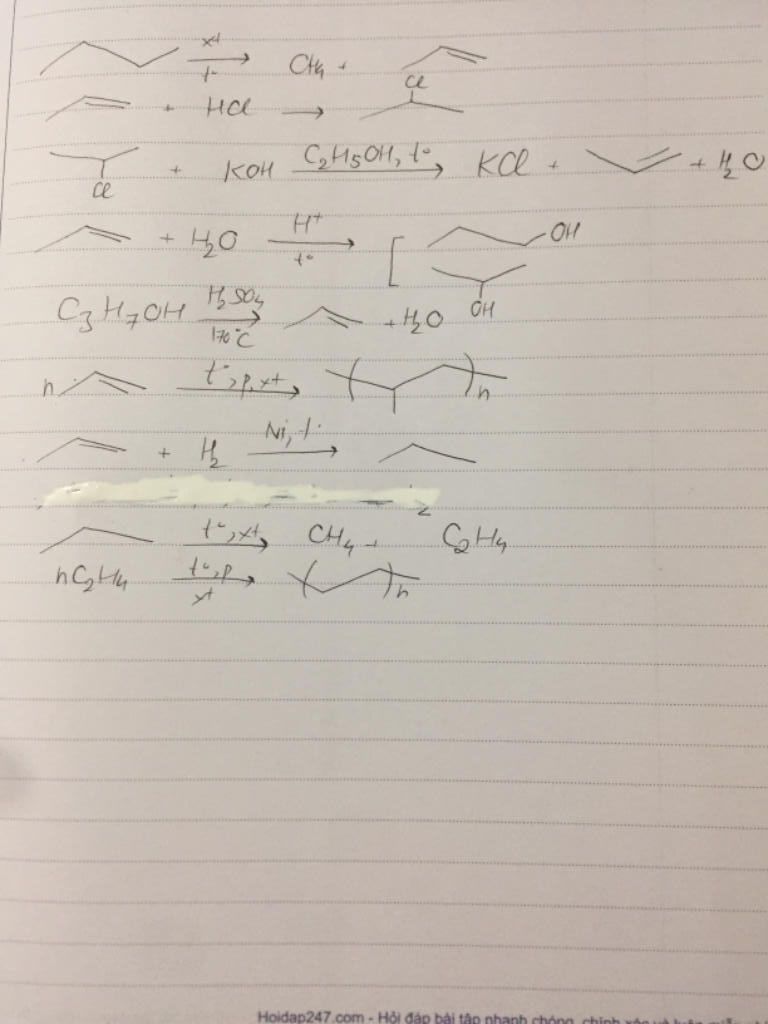 xt
t° CH4 +
+ HCl → Cl
Cl + KOH C2H5OH, t° → KCl + + H2O
+ H2O H+ t° → [ OH
OH
C3H7OH H2SO4 170°C → + H2O
n t°, p, xt → ( )n
+ H2 Ni, t° →
2
t°, xt → CH4 + C2H4
nC2H4 t°, p xt → ( )n
Hoidap247.com - Hỏi đáp bài tập nhanh chóng, chính xác và